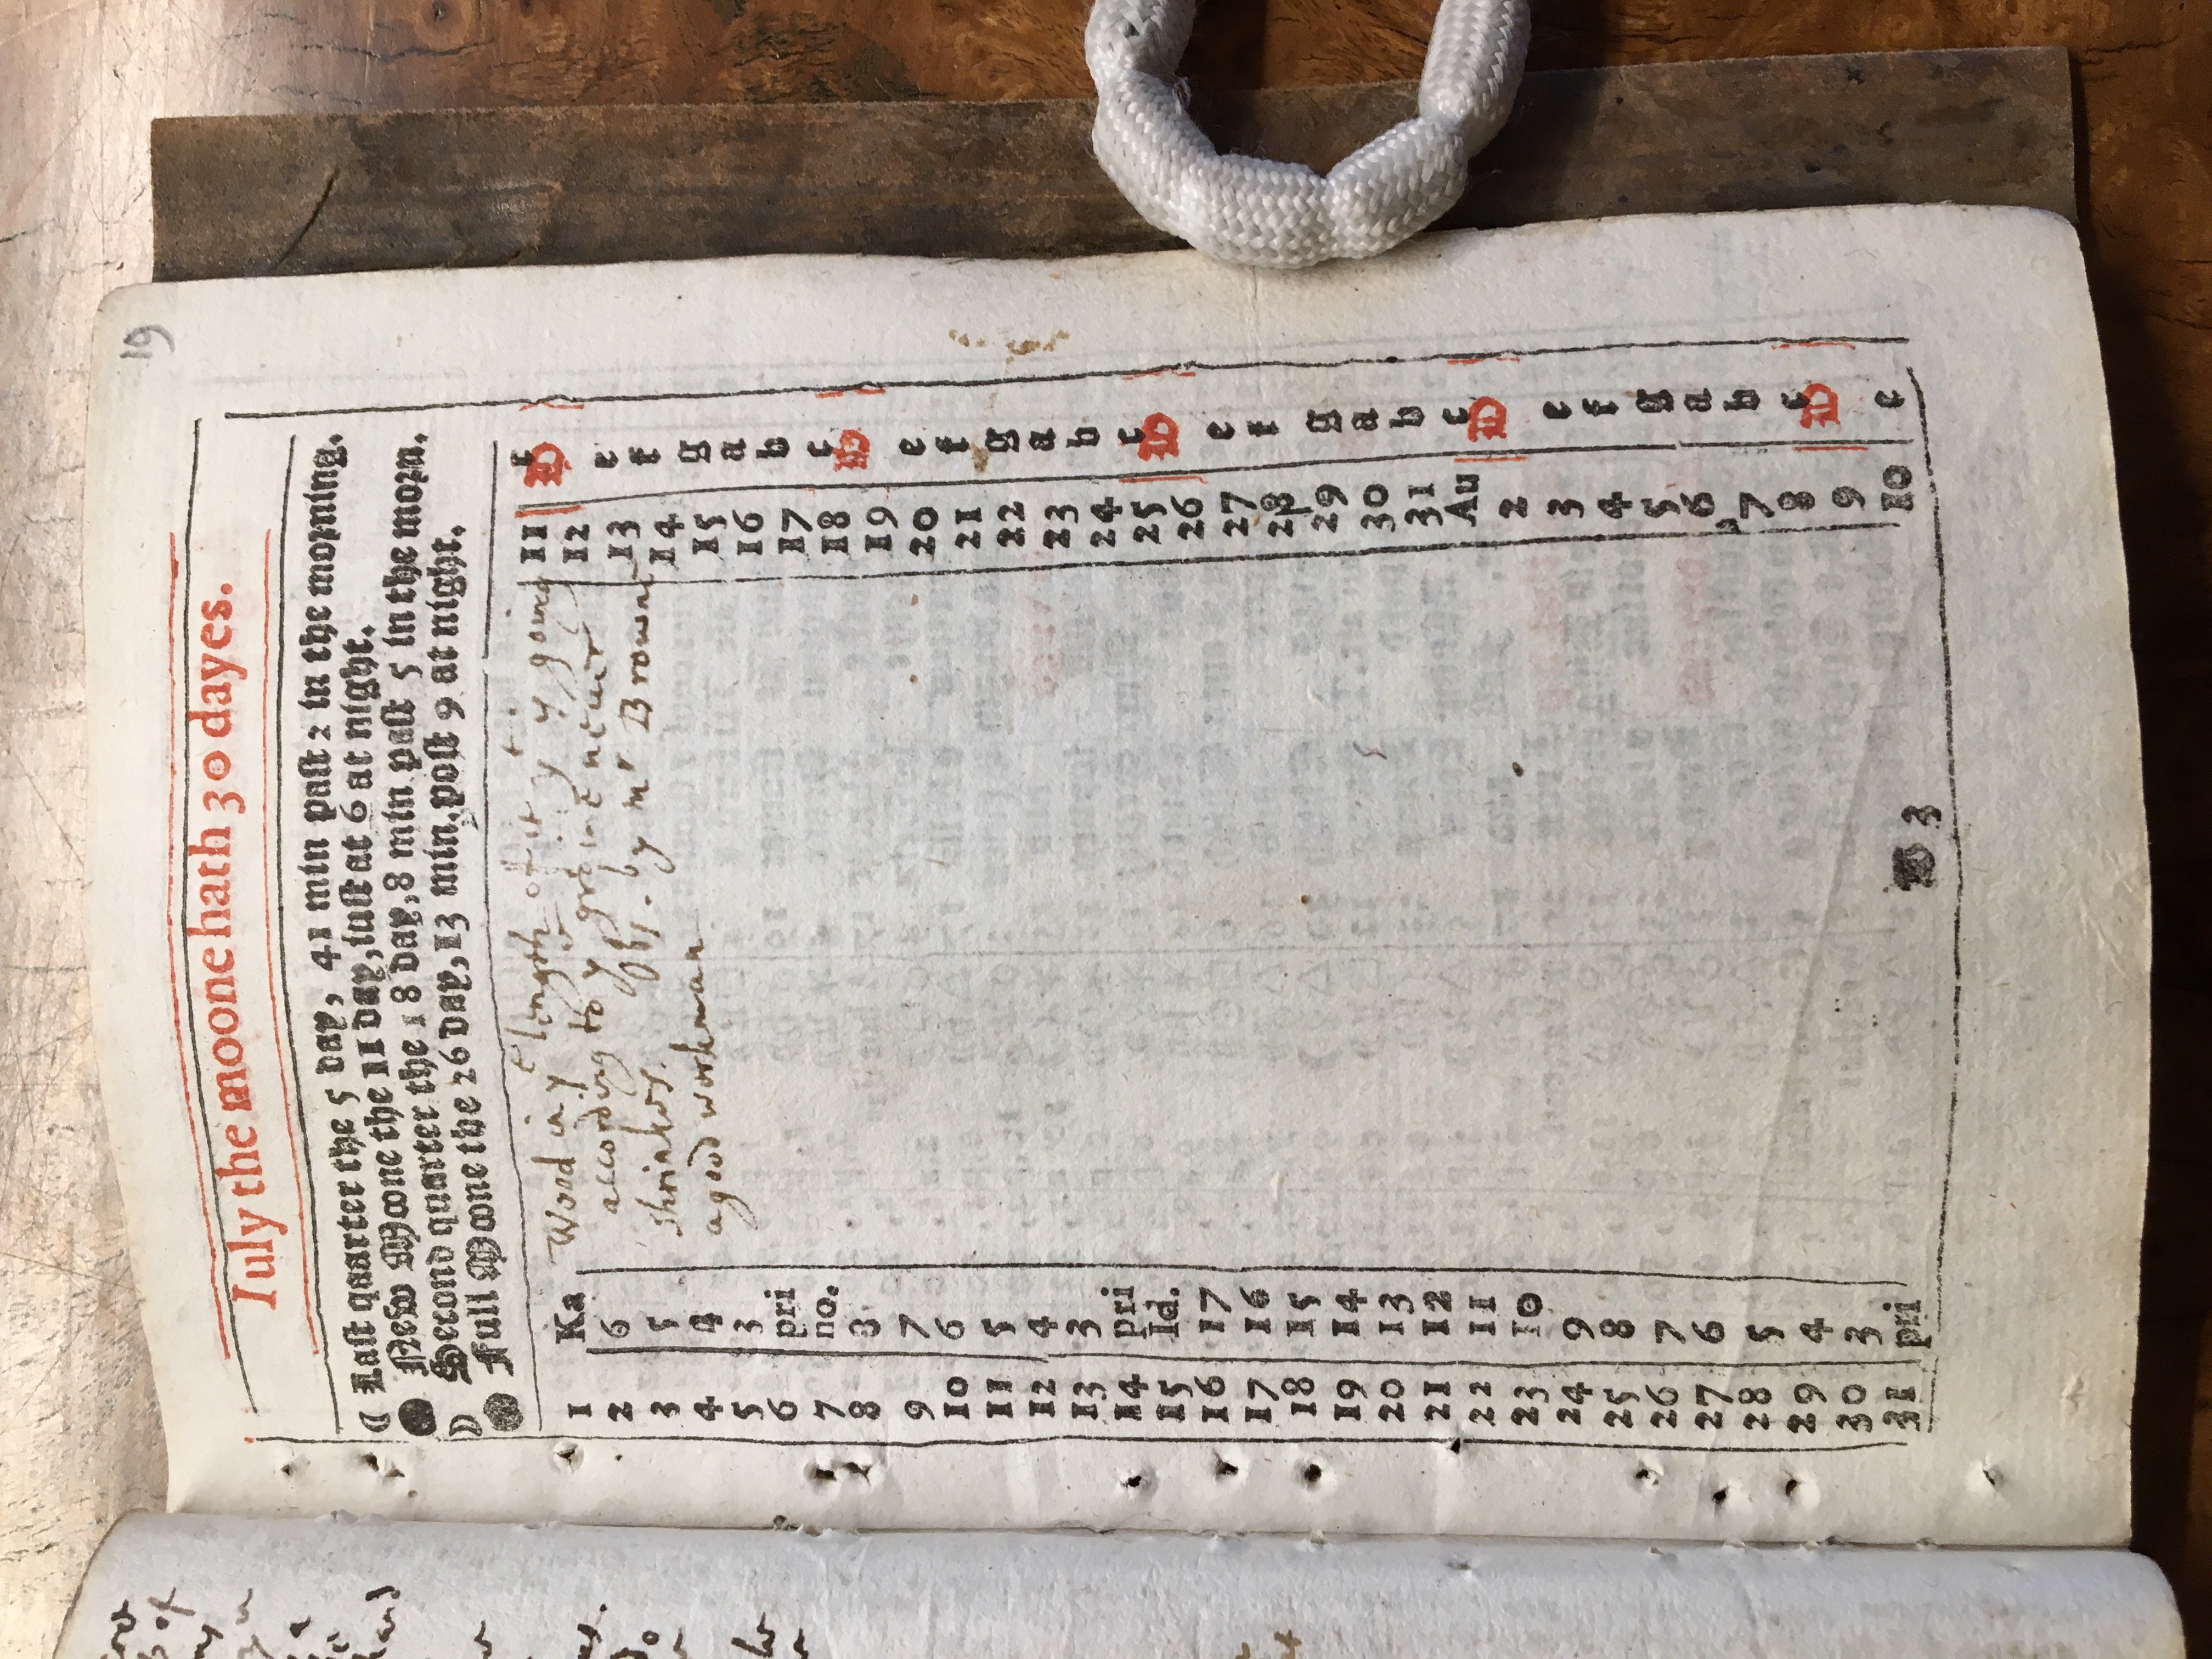 19
Iuly the moone hath 30 dayes.
Last quarter the 5 day, 41 min past 2 in the morning.
New Moone the 11 day, iust at 6 at night.
Second quarter the 18 day, 8 min past 5 in the morn.
Full Moone the 26 day, 13 min. post 9 at night.
Wood in yᵉ length of it yᵗ going
according to yᵉ graine neuer
shrinkes. by mʳ Browne
a good workeman
1 Ka 11 c
2 6 12 D
3 5 13 e
4 4 14 f
5 3 15 g
6 pri 16 a
7 no. 17 b
8 8 18 c
9 7 19 D
10 6 20 e
11 5 21 f
12 4 22 g
13 3 23 a
14 pri 24 b
15 Id. 25 c
16 17 26 D
17 16 27 e
18 15 28 f
19 14 29 g
20 13 30 a
21 12 31 b
22 11 Au c
23 10 2 D
24 9 3 e
25 8 4 f
26 7 5 g
27 6 6 a
28 5 7 b
29 4 8 c
30 3 9 D
31 pri 10 e
B 3